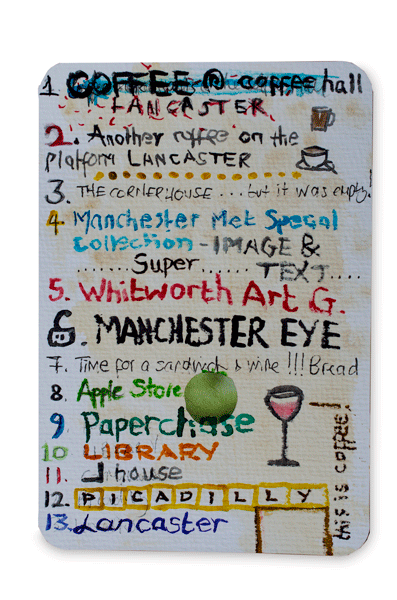 1 COFFEE @ coffee hall
LANCASTER
2. Another coffee on the
platform LANCASTER
3. THE CORNERHOUSE ... but it was empty!
4 Manchester Met Special
Collection - IMAGE &
....... Super ...... TEXT ....
5. Whitworth Art G.
6. MANCHESTER EYE
7. Time for a sandwich & wine !!! Bread
8. Apple Store
9 Paperchase
10 LIBRARY
11. J house
12. PICADILLY
13. Lancaster
this is coffee!